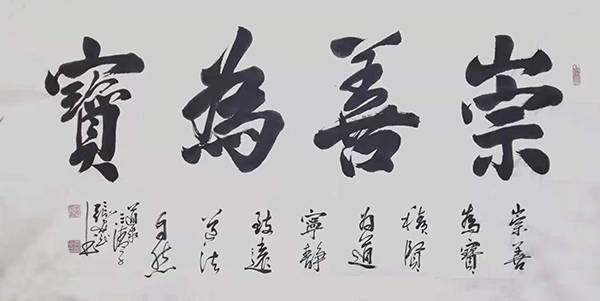 崇善為寶
崇善
為寶
積賢
為道
寧靜
致遠
道法
自然